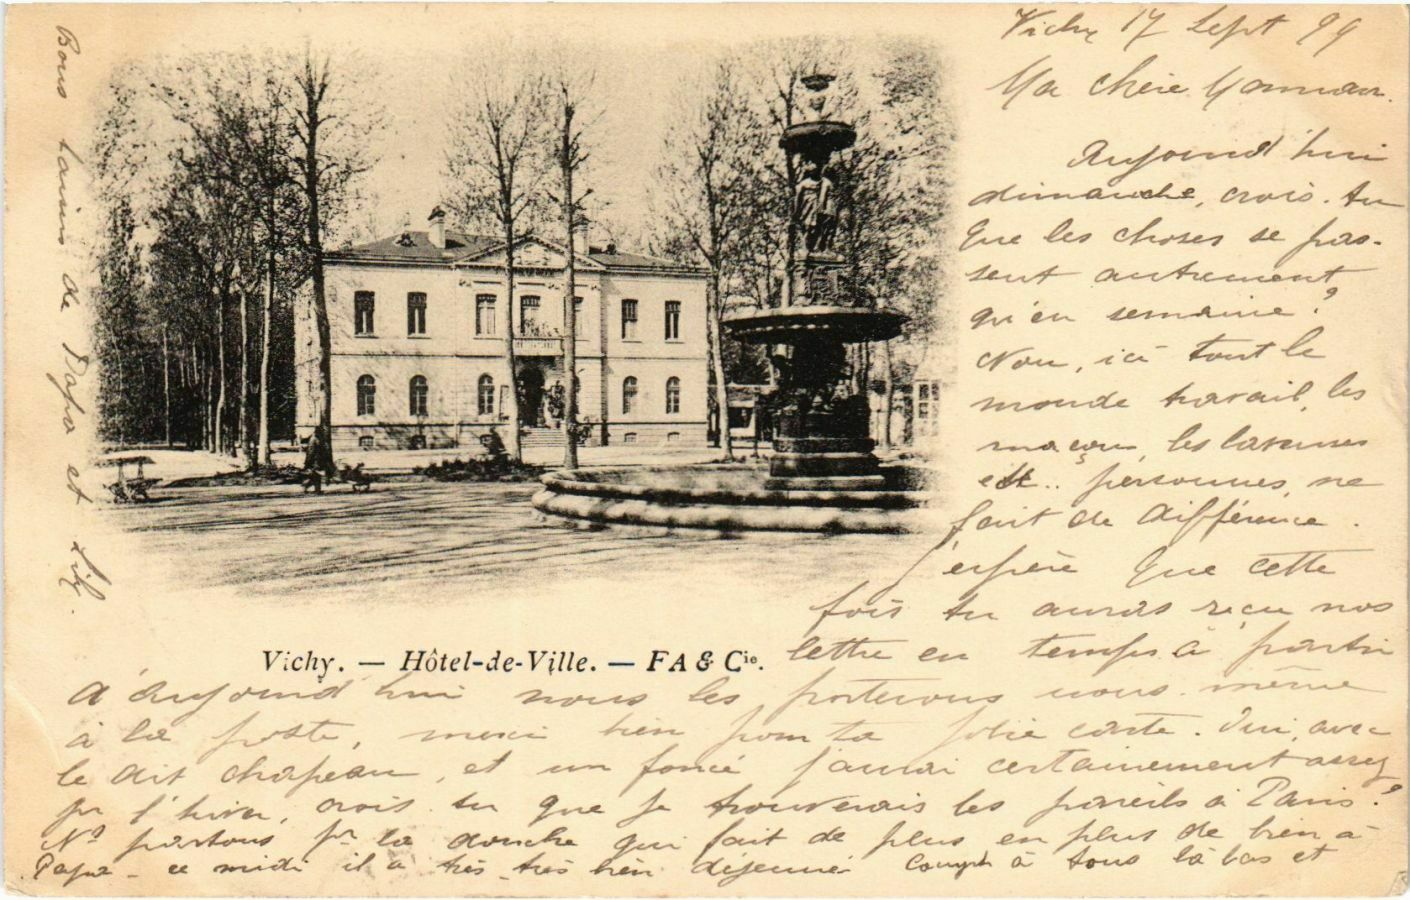 Vichy 17 Sept 99
Ma chère Maman.
Aujourd'hui
dimanche, crois-tu
que les choses se pas-
sent autrement
qu'en semaine?
Non, ici tout le
monde travail, les
maçons, les laveuses
etc.. personnes, ne
fait de différence.
J'espère que cette
fois tu auras reçu nos
lettre en temps à partir
d'aujourd'hui nous les porterons nous-même
à la poste, merci bien pour ta jolie carte. Oui, avec
le dit chapeau, et un foncé j'aurai certainement assez
pr l'hiver, crois-tu que je trouverais les pareils à Paris?
Ns partons pr la douche qui fait de plus en plus de bien à
Papa - ce midi il a très-très bien déjeuné Compts à tous là bas et
Bons baisers de Papa et Lily.
Vichy. — Hôtel-de-Ville. — FA & Cie.